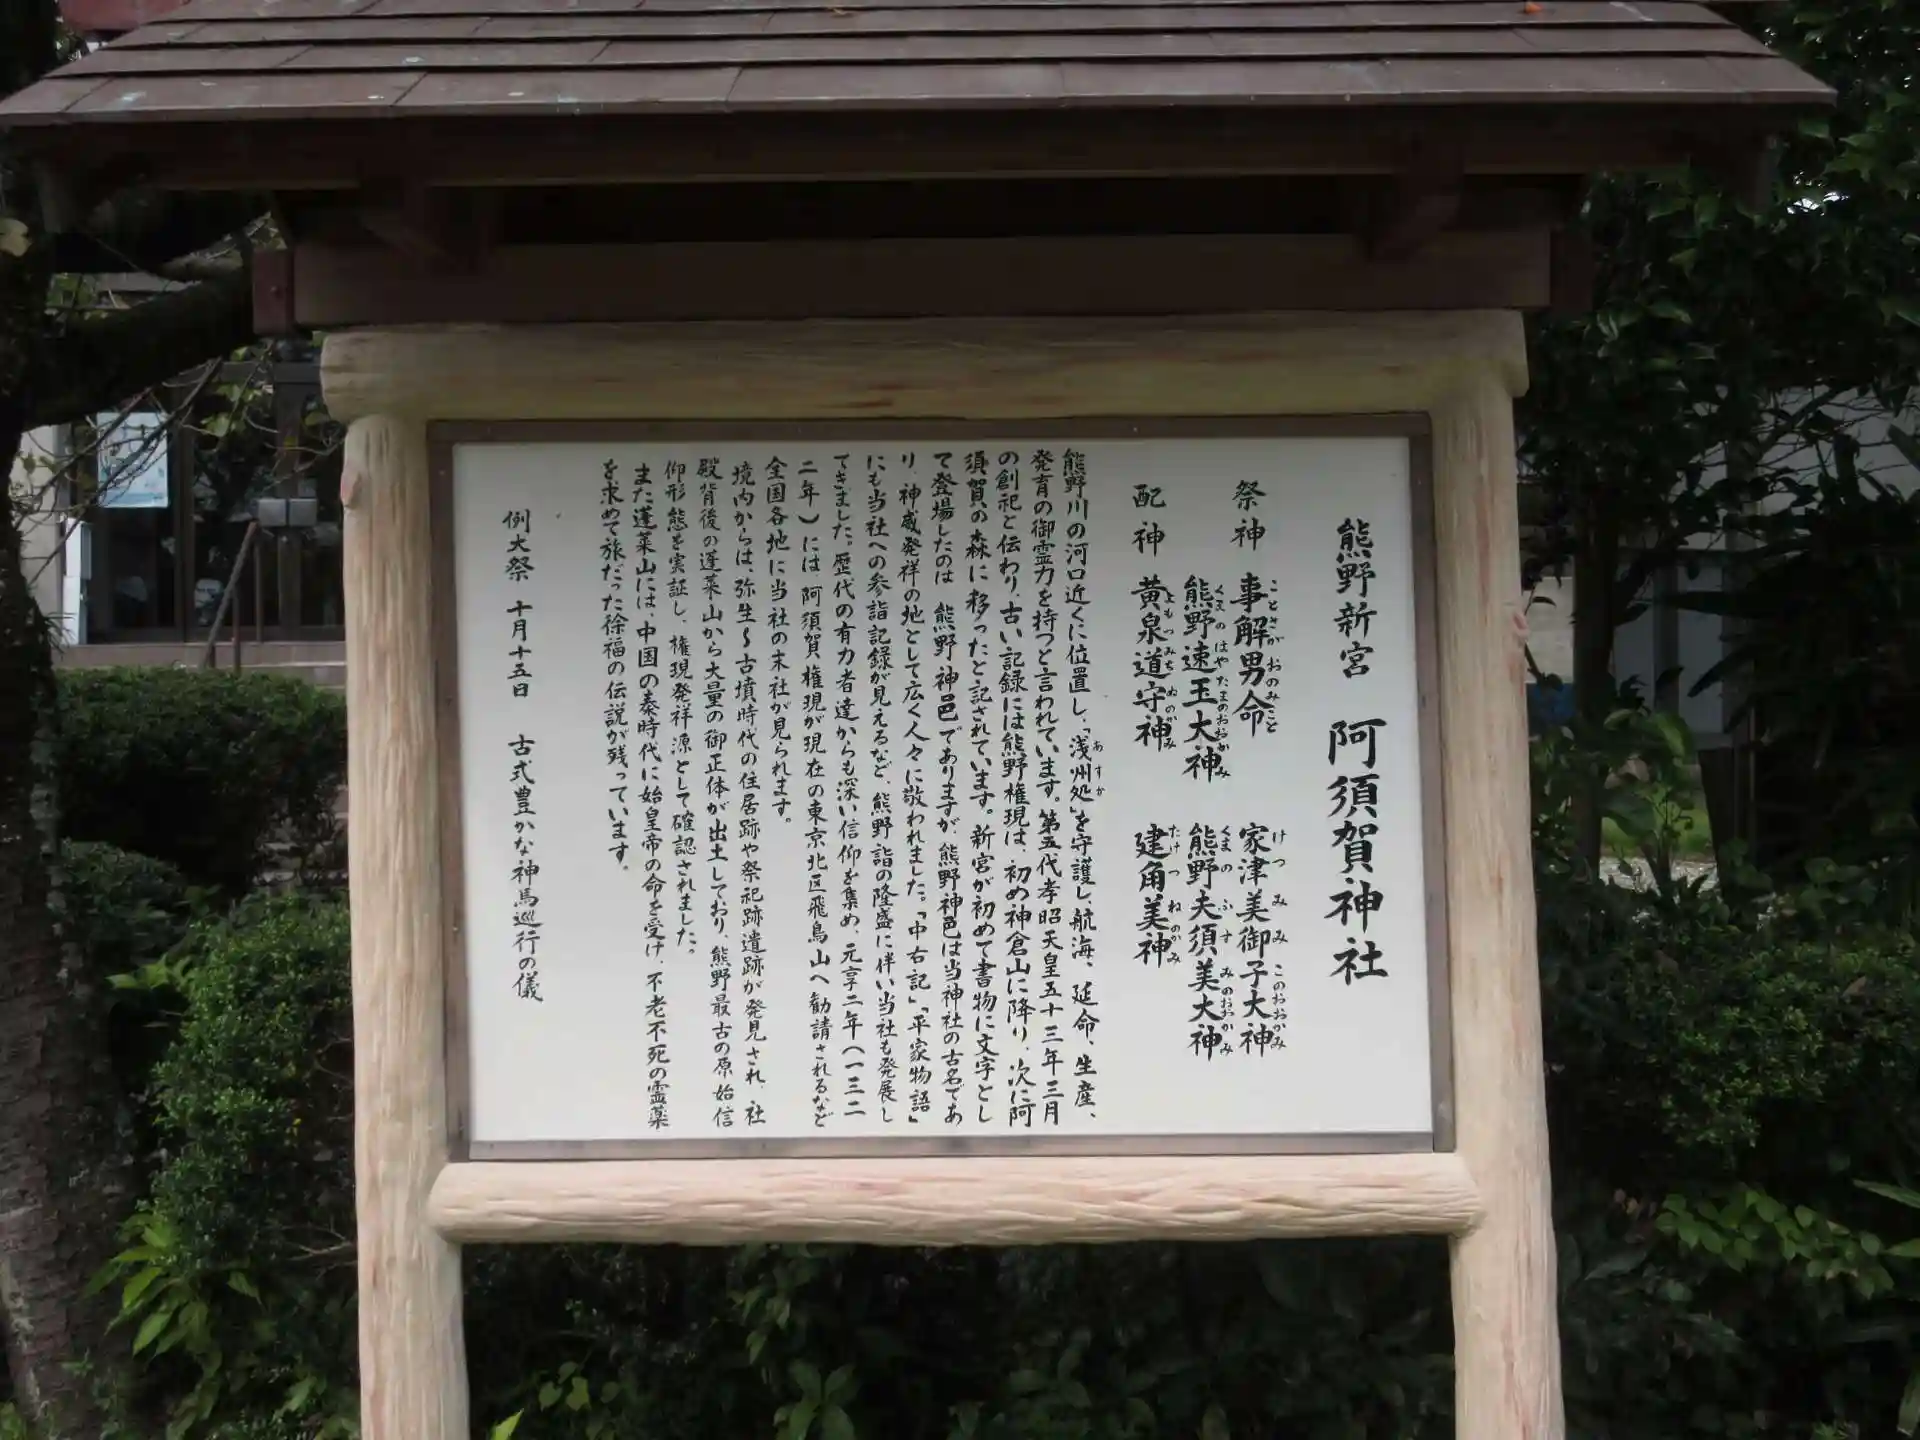 熊野新宮 阿須賀神社
祭神 事解男命 家津美御子大神
ことさがおのみこと けつみみこのおおかみ
熊野速玉大神 熊野夫須美大神
くまのはやたまのおおかみ くまのふすみのおおかみ
配神 黄泉道守神 建角美神
よもつみちもりのかみ たけつねのかみ
熊野川の河口近くに位置し、「浅州処」を守護し、航海、延命、生産、
あすか
発育の御霊力を持つと言われています。第五代孝昭天皇五十三年三月
の創祀と伝わり、古い記録には熊野権現は、初め神倉山に降り、次に阿
須賀の森に移ったと記されています。新宮が初めて書物に文字とし
て登場したのは 熊野神邑でありますが、熊野神邑は当神社の古名であ
り、神威発祥の地として広く人々に敬われました。「中右記」「平家物語」
にも当社への参詣記録が見えるなど、熊野詣の隆盛に伴い当社も発展し
てきました。歴代の有力者達からも深い信仰を集め、元享二年(一三二
二年)には阿須賀権現が現在の東京北区飛鳥山へ勧請されるなど
全国各地に当社の末社が見られます。
境内からは、弥生~古墳時代の住居跡や祭祀跡遺跡が発見され、社
殿背後の蓬莱山から大量の御正体が出土しており、熊野最古の原始信
仰形態を実証し、権現発祥源として確認されました。
また蓬莱山には、中国の秦時代に始皇帝の命を受け、不老不死の霊薬
を求めて旅だった徐福の伝説が残っています。
例大祭 十月十五日 古式豊かな神馬巡行の儀